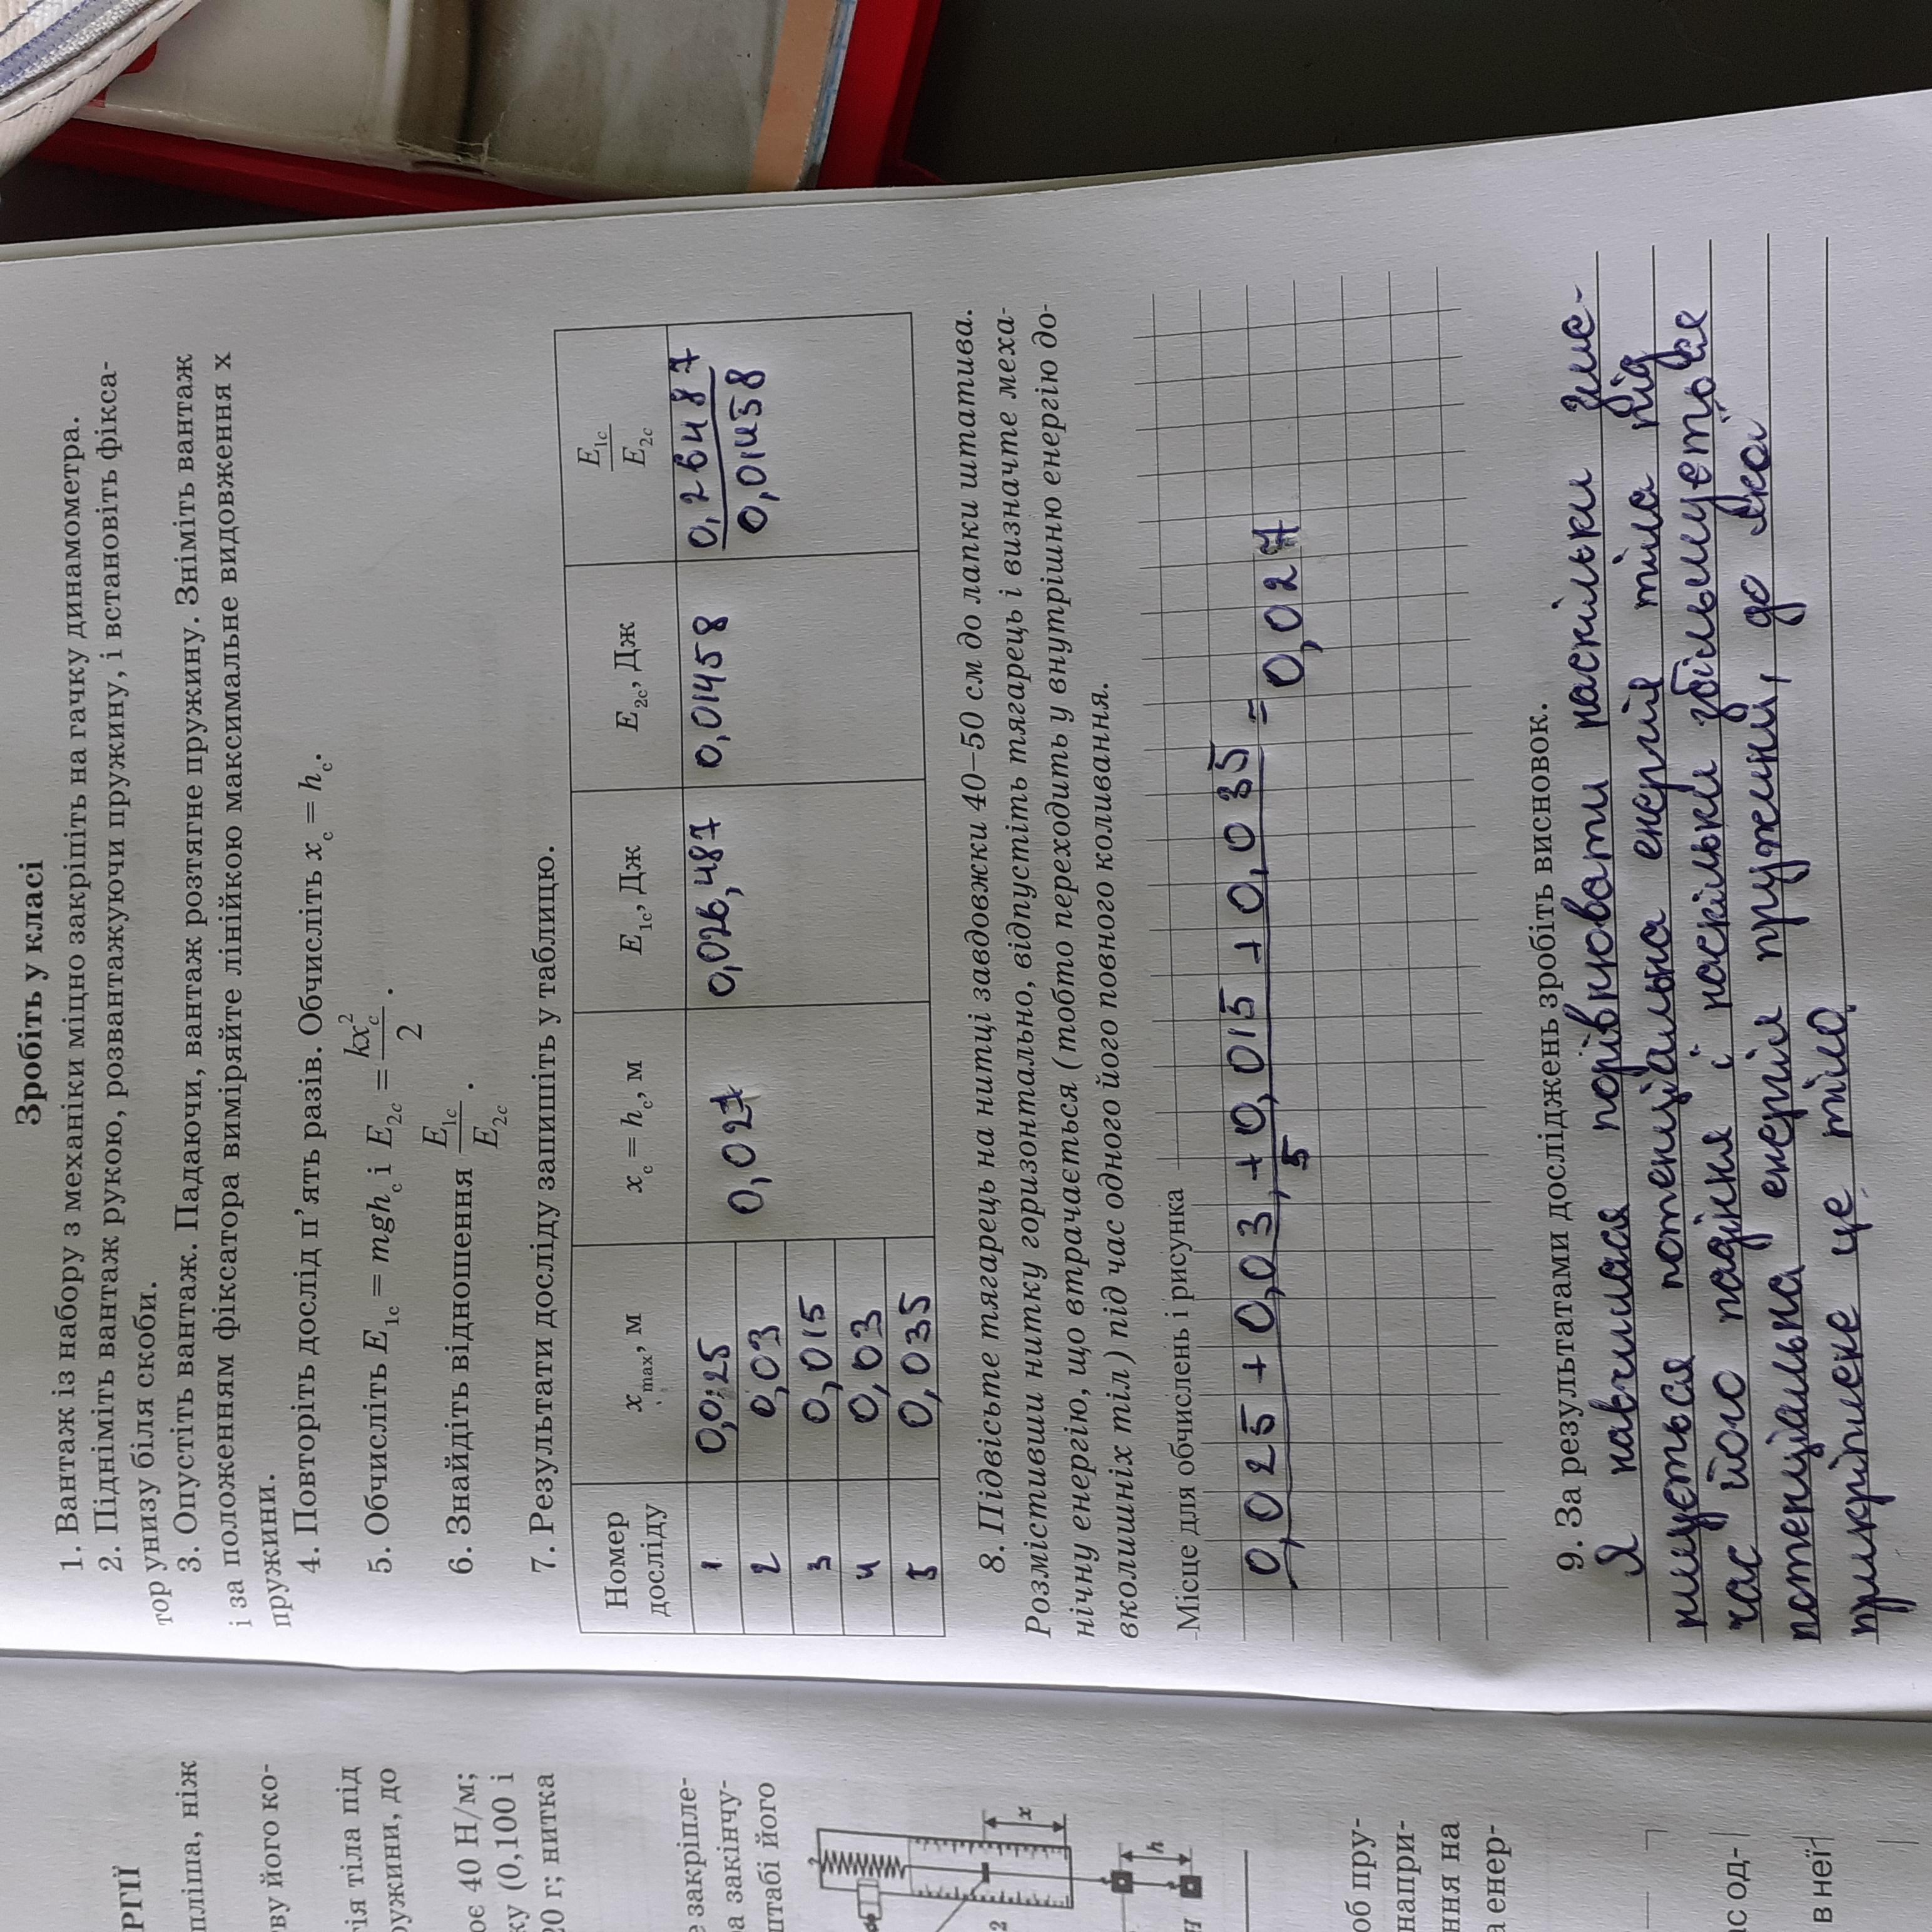 Зробіть у класі
1. Вантаж із набору з механіки міцно закріпіть на гачку динамометра.
2. Підніміть вантаж рукою, розвантажуючи пружину, і встановіть фікса-
тор унизу біля скоби.
3. Опустіть вантаж. Падаючи, вантаж розтягне пружину. Зніміть вантаж
і за положенням фіксатора виміряйте лінійкою максимальне видовження x
пружини.
4. Повторіть дослід п'ять разів. Обчисліть x_c = h_c.
5. Обчисліть E_1c = mgh_c і E_2c = kx_c^2/2.
6. Знайдіть відношення E_1c/E_2c.
7. Результати досліду запишіть у таблицю.
Номер досліду x_max, м x_c = h_c, м E_1c, Дж E_2c, Дж E_1c/E_2c
1 0,025 0,027 0,026,487 0,01458 0,26487/0,01458
2 0,03
3 0,015
4 0,03
5 0,035
8. Підвісьте тягарець на нитці завдовжки 40–50 см до лапки штатива.
Розмістивши нитку горизонтально, відпустіть тягарець і визначте меха-
нічну енергію, що втрачається (тобто переходить у внутрішню енергію до-
вколишніх тіл) під час одного його повного коливання.
Місце для обчислень і рисунка
0,025 + 0,03 + 0,015 + 0,035 = 0,027
5
9. За результатами досліджень зробіть висновок.
Я навчилася порівнювати наскільки зме-
ншується потенціальна енергія тіла під
час його падіння і наскільки збільшується
потенціальна енергія пружини, до якої
прикріплене це тіло.
РГІЇ
пліша, ніж
ву його ко-
гія тіла під
ружини, до
ює 40 Н/м;
ку (0,100 і
20 г; нитка
е закріпле-
а закінчу-
штабі його
x
h
2
об пру-
напри-
ння на
а енер-
с од-
в неї